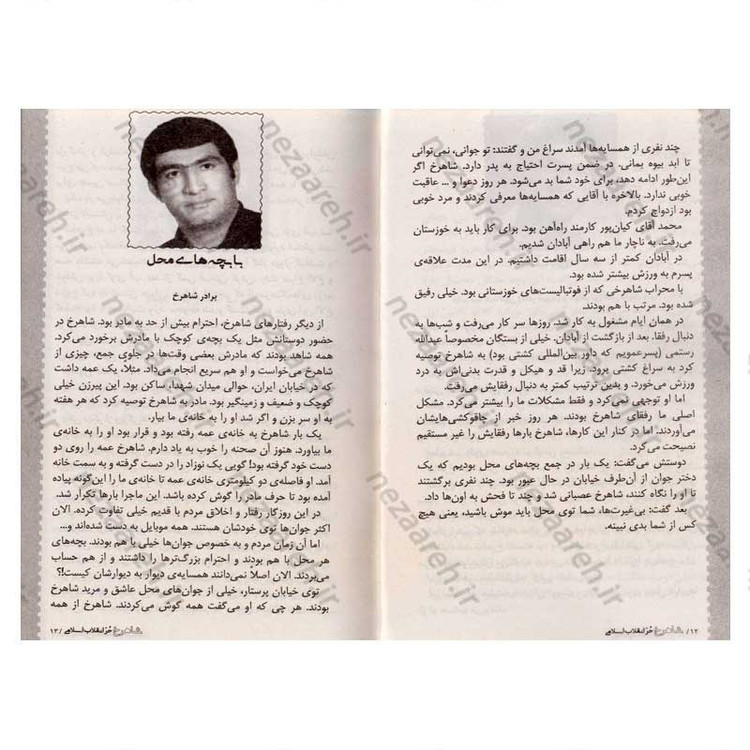 چند نفری از همسایه‌ها آمدند سراغ من و گفتند: تو جوانی، نمی‌توانی
تا ابد بیوه بمانی. در ضمن پسرت احتیاج به پدر دارد. شاهرخ اگر
این‌طور ادامه دهد، برای خود شما بد می‌شود. هر روز دعوا و ... عاقبت
خوبی ندارد. بالاخره با آقایی که همسایه‌ها معرفی کردند و مرد خوبی
بود ازدواج کردم.
محمد آقای کیان‌پور کارمند راه‌آهن بود. برای کار باید به خوزستان
می‌رفت. به ناچار ما هم راهی آبادان شدیم.
در آبادان کمتر از سه سال اقامت داشتیم. در این مدت علاقه‌ی
پسرم به ورزش بیشتر شده بود.
با محراب شاهرخی که از فوتبالیست‌های خوزستانی بود. خیلی رفیق
شده بود. مرتب با هم بودند.
در همان ایام مشغول به کار شد. روزها سر کار می‌رفت و شب‌ها به
دنبال رفقا. بعد از بازگشت از آبادان. خیلی از بستگان مخصوصاً عبدالله
رستمی (پسرعمویم که داور بین‌المللی کشتی بود) به شاهرخ توصیه
کرد به سراغ کشتی برود. زیرا قد و هیکل و قدرت بدنی‌اش به درد
ورزش می‌خورد. و بدین ترتیب کمتر به دنبال رفقایش می‌رفت.
اما او توجهی نمی‌کرد و فقط مشکلات ما را بیشتر می‌کرد. مشکل
اصلی ما رفقای شاهرخ بودند. هر روز خبر از چاقوکشی‌هایشان
می‌آوردند. اما در کنار این کارها، شاهرخ بارها رفقایش را غیر مستقیم
نصیحت می‌کرد.
دوستش می‌گفت: یک بار در جمع بچه‌های محل بودیم که یک
دختر جوان از آن‌طرف خیابان در حال عبور بود. چند نفری برگشتند
تا او را نگاه کنند، شاهرخ عصبانی شد و چند تا فحش به اون‌ها داد.
بعد گفت: بی‌غیرت‌ها، شما توی محل باید موش باشید، یعنی هیچ
کس از شما بدی نبینه.
۱۲/ شاهرخ حُر انقلاب اسلامی
با بچه‌های محل
برادر شاهرخ
از دیگر رفتارهای شاهرخ، احترام بیش از حد به مادر بود. شاهرخ در
حضور دوستانش مثل یک بچه‌ی کوچک با مادرش برخورد می‌کرد.
همه شاهد بودند که مادرش بعضی وقت‌ها در جلوی جمع، چیزی از
شاهرخ می‌خواست و او هم سریع انجام می‌داد. مثلا، یک عمه داشت
که در خیابان ایران، حوالی میدان شهدا، ساکن بود. این پیرزن خیلی
کوچک و ضعیف و زمینگیر بود. مادر به شاهرخ توصیه کرد که هر هفته
به او سر بزن و اگر شد او را به خانه‌ی ما بیار.
یک بار شاهرخ به خانه‌ی عمه رفته بود و قرار بود او را به خانه‌ی
ما بیاورد. هنوز آن صحنه را خوب به یاد دارم. شاهرخ عمه را روی دو
دست خود گرفته بود! گویی یک نوزاد را در دست گرفته و به سمت خانه
آمد. او فاصله‌ی دو کیلومتری خانه‌ی عمه تا خانه‌ی ما را این‌گونه پیاده
آمده بود تا حرف مادر را گوش کرده باشد. این ماجرا بارها تکرار شد.
در این روزگار رفتار و اخلاق مردم با قدیم خیلی تفاوت کرده. الان
اکثر جوان‌ها توی خودشان هستند. همه موبایل به دست شده‌اند و...
اما آن زمان مردم و به خصوص جوان‌ها خیلی با هم بودند. بچه‌های
هر محل با هم بودند و احترام بزرگ‌ترها را داشتند و از هم حساب
می‌بردند. الان اصلاً نمی‌دانند همسایه‌ی دیوار به دیوارشان کیست!؟
توی خیابان پرستار، خیلی از جوان‌های محل عاشق و مرید شاهرخ
بودند. هر چی که او می‌گفت همه گوش می‌کردند. شاهرخ از همه
شاهرخ حُر انقلاب اسلامی /۱۳
nezaareh.ir